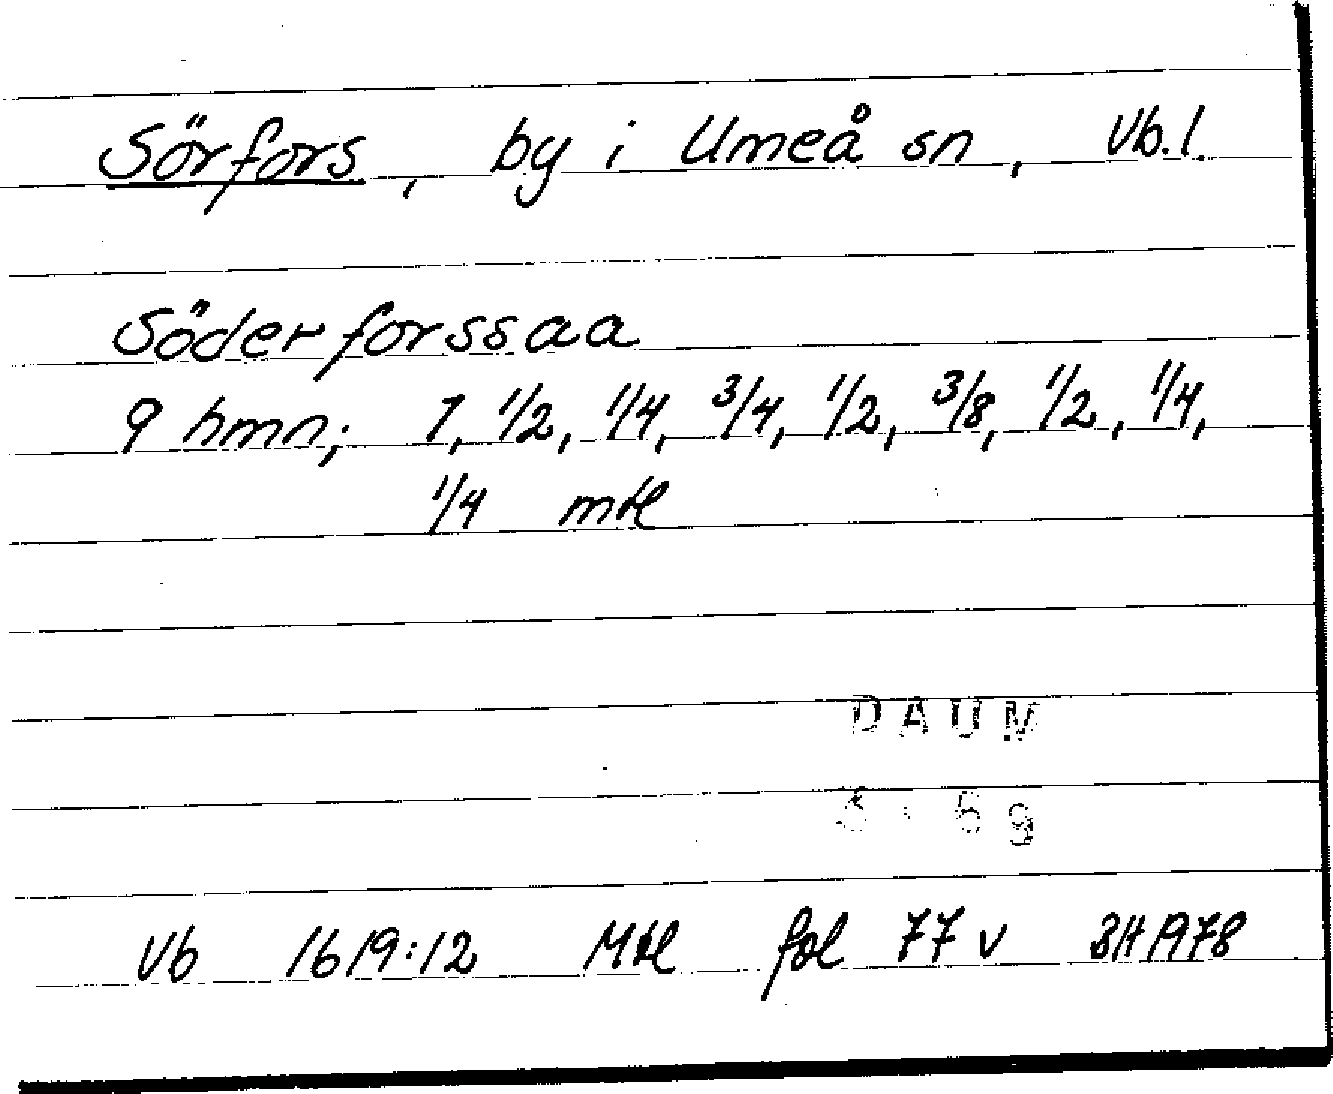 Sörfors, by i Umeå sn, Vb.l.
Söderforssaa
9 hmn; 1, 1/2, 1/4, 3/4, 1/2, 3/8, 1/2, 1/4,
1/4 mtl
DAUM
Vb 1619:12 Mtl fol 77 v BH 1978